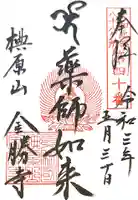 奉拝 令和三年
五月三日
薬師如来
椣原山
金勝寺